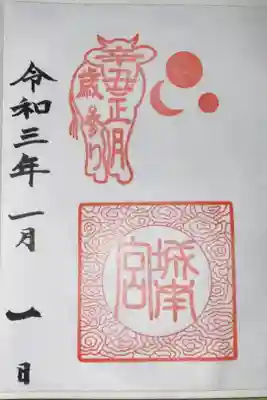 辛丑正月
歳参り
城南宮
令和三年一月一日